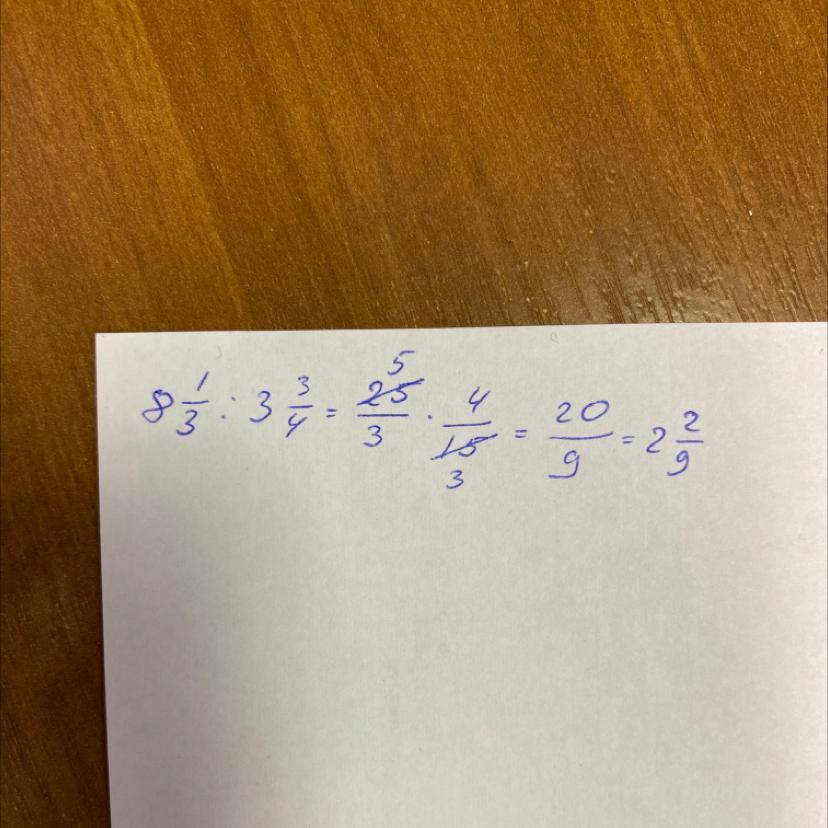 8 1/3 : 3 3/4 = 25/3 5 · 4/15 3 = 20/9 = 2 2/9